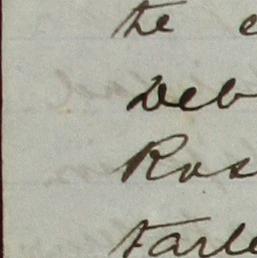 the e
Deb
Ros
Farle